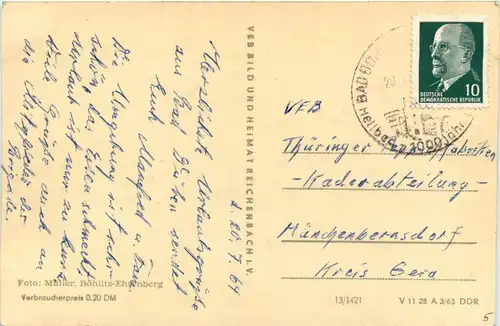 Herzlichste Urlaubsgrüße
aus Bad Düben sendet
Euch Manfred u. Frau
Die Umgebung ist sehr
schön, das Essen schmeckt,
Urlaub ist nur zu kurz.
Viele Grüße auch an
die Mitglieder der
Brigade
d. 20. 7. 64
VEB BILD UND HEIMAT REICHENBACH I. V.
BAD DÜBEN
1000 Jahre
10
DEUTSCHE
DEMOKRATISCHE REPUBLIK
VEB
Thüringer Teppichfabriken
- Kaderabteilung -
Münchenbernsdorf
Kreis Gera
Foto: Müller, Böhlitz-Ehrenberg
Verbraucherpreis 0.20 DM
13/1421
V 11 28 A 3/63 DDR
5